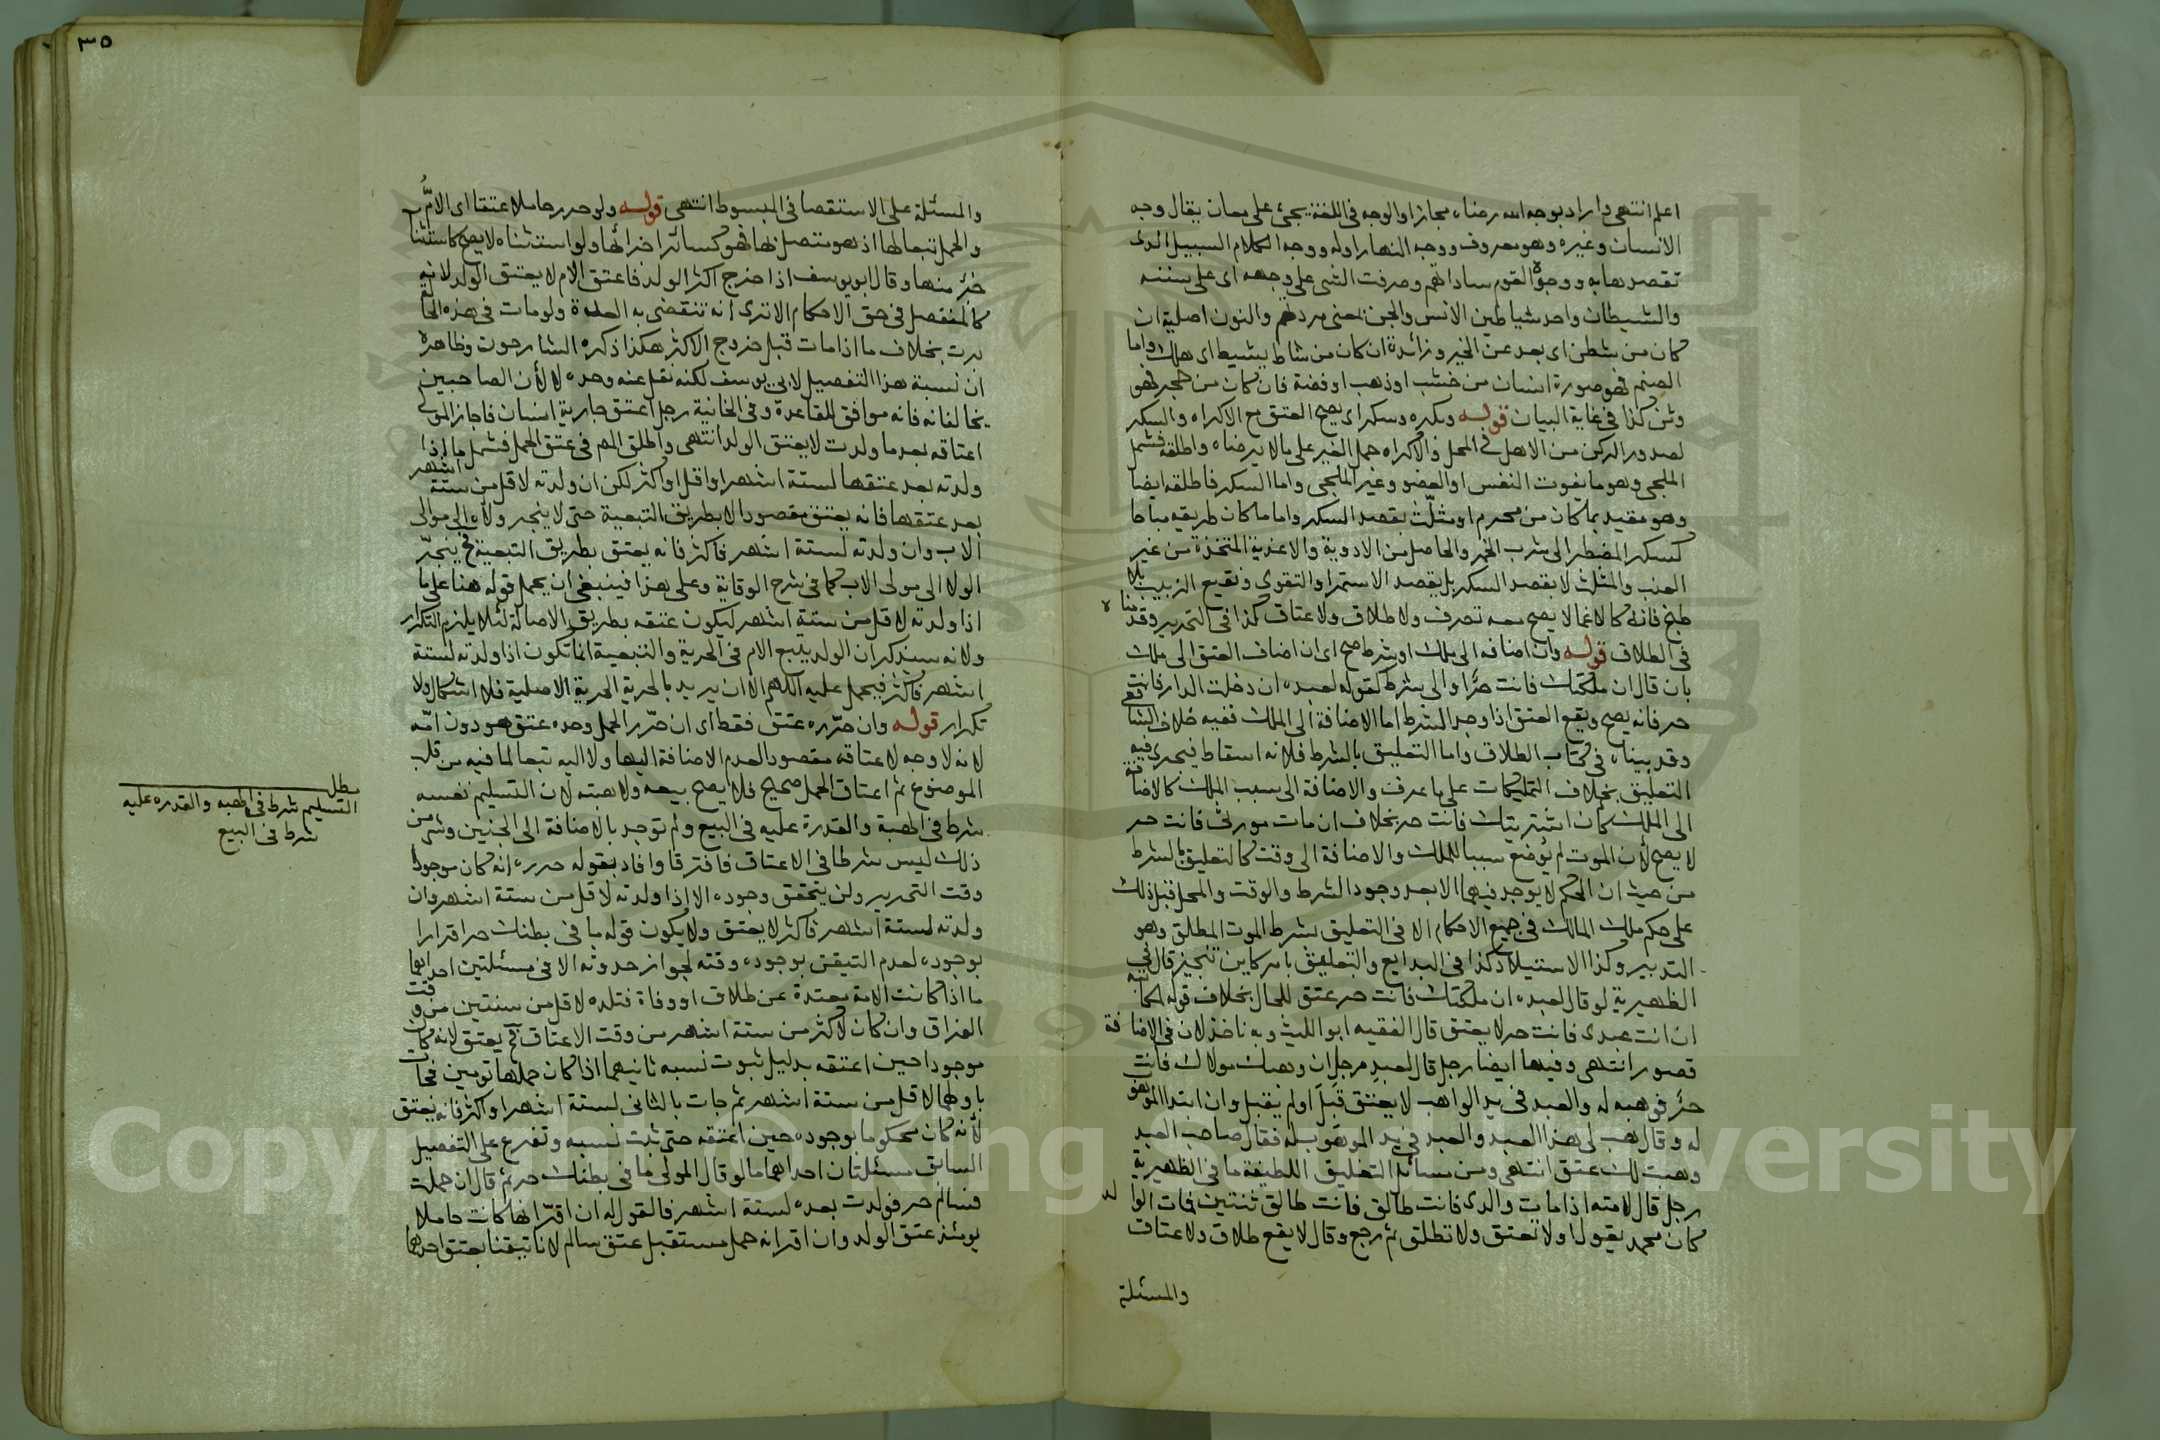 اعلم انتهى واراد بوجه الله رضاه مجازا والوجه في اللغة يجئ على معان يقال وجه
الانسان وغيره وهو معروف ووجه النهار اوله ووجه الكلام السبيل الذى
تقصدها به ووجوه القوم ساداتهم وصرفت الشى على وجهه اى على سننه
والشيطان واحد شياطين الانس والجن بمعنى مردتهم والنون اصلية ان
كان من شطن اى بعد عن الخير وزائدة ان كان من شاط يشيط اى هلك واما
الصنم فهو صورة انسان من خشب او ذهب او فضة فان كان من حجر فهو
وثن كذا في غاية البيان قوله وبكره وسكر اى يصح العتق مع الاكراه والسكر
لصدور الركن من الاهل في المحل والاكراه حمل الغير على مالا يرضاه واطلقه فشمل
الملجى وهو ما يفوت النفس او العضو وغير الملجى واما السكر فاطلقه ايضا
وهو مقيد بما كان من محرم او مثلّث بقصد السكر واما ما كان طريقه مباحا
كسكر المضطر الى شرب الخمر والحاصل من الادوية والاغذية المتخذة من غير
العنب والمثلث لا بقصد السكر بل بقصد الاستمرا والتقوى ونقيع الزبيب بلا
طبخ فانه كالاغما لا يصح معه تصرف ولا طلاق ولا عتاق كذا في التحرير وقدمناه
في الطلاق قوله وان اضافه الى ملك او شرط صح اى ان اضاف العتق الى ملك
بان قال ان ملكتك فانت حرّ او الى شرط كقوله لعبده ان دخلت الدار فانت
حر فانه يصح ويقع العتق اذا وجد الشرط اما الاضافة الى الملك ففيه خلاف الشافعى
وقد بيناه في كتاب الطلاق واما التعليق بالشرط فلانه اسقاط فيجرى فيه
التعليق بخلاف التمليكات على ما عرف والاضافة الى سبب الملك كالاضافة
الى الملك كان اشتريتك فانت حر بخلاف ان مات مورثى فانت حر
لا يصح لأن الموت لم يوضع سببا للملك والاضافة الى وقت كالتعليق بالشرط
من حيث ان الحكم لا يوجد فيهما الا بعد وجود الشرط والوقت والمحل قبل ذلك
على حكم ملك المالك في جميع الاحكام الا في التعليق بشرط الموت المطلق وهو
التدبير وكذا الاستيلاد كذا في البدايع والتعليق بامر كاين تنجيز قال في
الظهيرية لو قال لعبده ان ملكتك فانت حر عتق للحال بخلاف قوله لمكاتبه
ان انت عبدى فانت حر لا يعتق قال الفقيه ابو الليث وبه ناخذ لان في الاضافة
قصور انتهى وفيها ايضا رجل قال لعبدِ رجل ان وهبك مولاك فانت
حرّ فوهبه له والعبد في يد الواهب لا يعتق قَبِلَ او لم يقبل وان ابتدا الموهوب
له وقال هب لى هذا العبد والعبد في يد الموهوب له فقال صاحب العبد
وهبت لك عتق انتهى ومن مسائل التعليق اللطيفة ما في الظهيرية
رجل قال لامته اذا مات والدى فانت طالق فانت طالق ثنتين فمات الوالد
كان محمد يقول اولا تعتق ولا تطلق ثم رجع وقال لا يقع طلاق ولا عتاق
والمسئلة
٣٥
والمسئلة على الاستقصا في المبسوط انتهى قوله ولو حرر حاملا عتقا اى الامُّ
والحمل تبعا لها اذ هو متصل بها فهو كسائر اجزائها ولو استثناه لا يصح كاستثنا
جزء منها وقال ابو يوسف اذا خرج اكثر الولد فاعتق الام لا يعتق الولد لانه
كالمنفصل في حق الاحكام الا ترى انه تنقضى به العدة ولو مات في هذه الحالة
يرث بخلاف ما اذا مات قبل خروج الاكثر هكذا ذكره الشارحون وظاهره
ان نسبة هذا التفصيل لابى يوسف لكنه نقل عنه وحده لا لأن الصاحبين
يخالفانه فانه موافق للقاعدة وفي الخانية رجل اعتق جارية انسان فاجاز المولى
اعتاقه بعد ما ولدت لا يعتق الولد انتهى واطلق المص في عتق الحمل فشمل ما اذا
ولدته بعد عتقها لستة اشهر او اقل او اكثر لكن ان ولدته لاقل من ستة اشهر
بعد عتقها فانه يعتق مقصودا لا بطريق التبعية حتى لا ينجر ولاه الى موالى
الاب وان ولدته لستة اشهر فاكثر فانه يعتق بطريق التبعية فح ينجرّ
الولا الى مولى الاب كما في شرح الوقاية وعلى هذا فينبغى ان يحمل قوله هنا على ما
اذا ولدته لاقل من ستة اشهر ليكون عتقه بطريق الاصالة لئلا يلزم التكرار
ولانه سنذكر ان الولد يتبع الام في الحرية والتبعية انما تكون اذا ولدته لستة
اشهر فاكثر فيحمل عليه اللهم الا ان يريد بالحرية الحرية الاصلية فلا اشكال ولا
تكرار قوله وان حرّره عتق فقط اى ان حرّر الحمل وحده عتق هو دون امّه
لانه لا وجه لاعتاقه مقصودا لعدم الاضافة اليها ولا اليه تبعا لما فيه من قلب
الموضوع ثم اعتاق الحمل صحيح فلا يصح بيعه ولا هبته لان التسليم نفسه
شرط في الهبة والقدرة عليه في البيع ولم توجد بالاضافة الى الجنين وشى من
ذلك ليس شرطا في الاعتاق فافترقا وافاد بقوله حرره انه كان موجودا
وقت التحرير ولن يتحقق وجوده الا اذا ولدته لاقل من ستة اشهر وان
ولدته لستة اشهر فاكثر لا يعتق ولا يكون قوله ما في بطنك حر اقرارا
بوجوده لعدم التيقن بوجوده وقته لجواز حدوثه الا في مسئلتين احداهما
ما اذا كانت الامة معتدة عن طلاق او وفاة فتلده لاقل من سنتين من وقت
الفراق وان كان لاكثر من ستة اشهر من وقت الاعتاق فح يعتق لانه كان
موجودا حين اعتقه بدليل ثبوت نسبه ثانيهما اذا كان حملها توءمين فجات
باولهما لاقل من ستة اشهر ثم جات بالثانى لستة اشهر او اكثر فانه يعتق
لأنه كان محكوما بوجوده حين اعتقه حتى ثبت نسبه وتفرع على التفصيل
السابق مسئلتان احداهما ما لو قال المولى ما في بطنك حر ثم قال ان حملت
فسالم حر فولدت بعده لستة اشهر فالقول له ان اقرّ انها كانت حاملا
يومئذ عتق الولد وان اقر انه حمل مستقبل عتق سالم لانا تيقنا بعتق احدهما
مطلب
التسليم شرط في الهبه والقدره عليه
شرط في البيع
Copyright © King
University